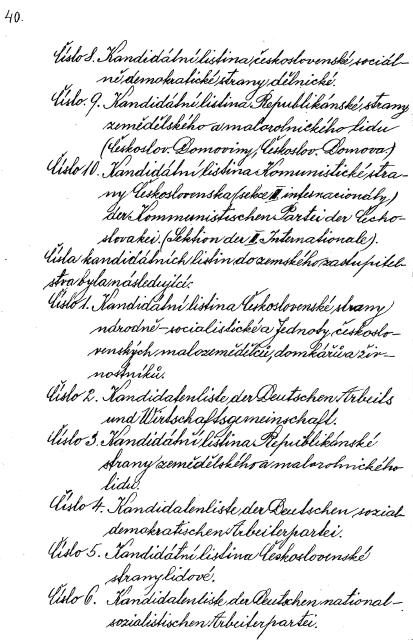 40.
Číslo 8. Kandidátní listina československé, sociál-
ně demokratické, strany, dělnické.
Číslo. 9. Kandidátní listina, Republikánské, strany,
zemědělského a malorolnického lidu
(Českoslov. Domoviny, Českoslov. Domova.)
Číslo 10. Kandidátní listina Komunistické, stra-
ny Československa, (sekce III internacionály,)
der Kommunistischen Partei der Čecho-
slovakei. (Sektion der II. Internationale).
Čísla kandidátních listin do zemského zastupitel-
stva byla následující:
Číslo 1. Kandidátní listina Československé, strany
národně-socialistické a Jednoty, českoslo-
venských, malozemědělců, domkářů a živ-
nostníků.
Číslo 2. Kandidatenliste, der Deutschen Arbeits
und Wirtschaftsgemeinschaft.
Číslo 3. Kandidátní listina Republikánské
strany zemědělského a malorolnického
lidu.
Číslo 4. Kandidatenliste der Deutschen, sozial-
demokratischen Arbeiterpartei.
Číslo 5. Kandidátní listina Československé
strany lidové.
Číslo 6. Kandidatenliste, der Deutschen national-
sozialistischen Arbeiterpartei.